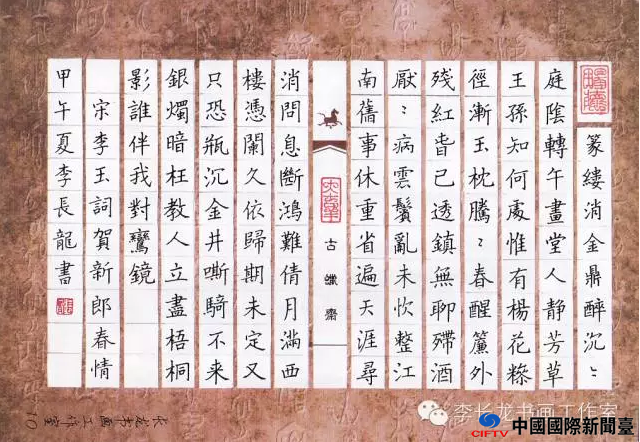 篆縷消金鼎醉沉〻
庭陰轉午畫堂人静芳草
王孫知何處惟有楊花糝
徑漸玉枕騰〻春醒簾外
殘紅旹已透鎮無聊殢酒
厭〻病雲鬢亂未忺整江
南舊事休重省遍天涯尋
消問息斷鴻難倩月滿西
樓憑闌久依歸期未定又
只恐瓶沉金井嘶騎不来
銀燭暗枉教人立盡梧桐
影誰伴我對鸞鏡
宋李玉詞賀新郎春情
甲午夏李長龍書
长龙书画工作室 10
李长龙书画工作室
CIFTV 中國國際新聞臺